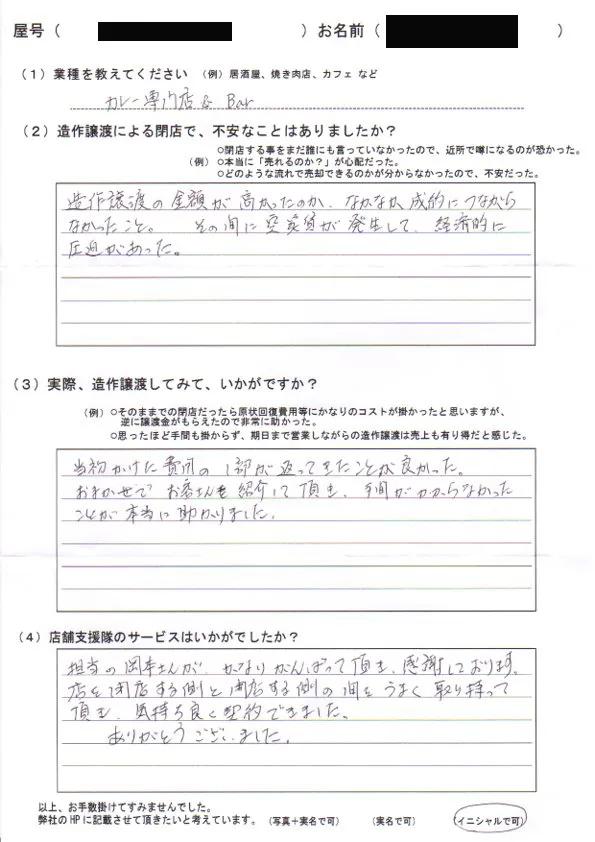 屋号（　　　　　　　　　　）お名前（　　　　　　　　　　）
（１）業種を教えてください （例）居酒屋、焼き肉店、カフェ など
カレー専門店 & Bar
（２）造作譲渡による閉店で、不安なことはありましたか？
○閉店する事をまだ誰にも言っていなかったので、近所で噂になるのが恐かった。
（例） ○本当に「売れるのか？」が心配だった。
○どのような流れで売却できるのかが分からなかったので、不安だった。
造作譲渡の金額が高かったのか、なかなか成約につながら
なかったこと。 その間に空家賃が発生して、経済的に
圧迫があった。
（３）実際、造作譲渡してみて、いかがですか？
（例） ○そのままでの閉店だったら原状回復費用等にかなりのコストが掛かったと思いますが、
逆に譲渡金がもらえたので非常に助かった。
○思ったほど手間も掛からず、期日まで営業しながらの造作譲渡は売上も有り得だと感じた。
当初かけた費用の1部が返ってきたことが良かった。
おまかせでお客さんを紹介して頂き、手間がかからなかった
ことが本当に助かりました。
（４）店舗支援隊のサービスはいかがでしたか？
担当の岡本さんが、かなりがんばって頂き、感謝しております。
店を閉店する側と開店する側の間をうまく取り持って
頂き、気持ち良く契約できました。
ありがとうございました。
以上、お手数掛けてすみませんでした。
弊社のHPに記載させて頂きたいと考えています。（写真＋実名で可） （実名で可） （イニシャルで可）